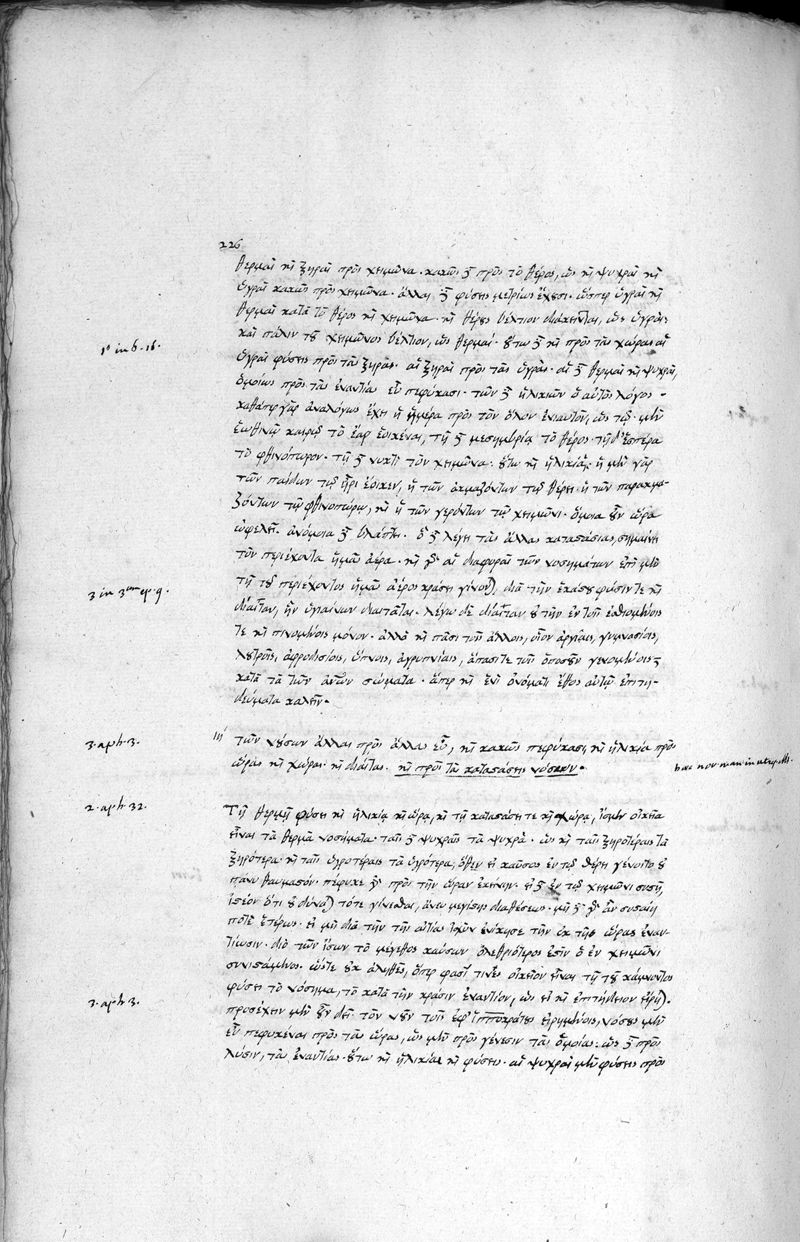 226
θερμαὶ καὶ ξηραὶ πρὸς χειμῶνα. κακῶς δὲ πρὸς τὸ θέρος, ὡς καὶ ψυχραὶ καὶ
ὑγραὶ κακῶς πρὸς χειμῶνα. ἄλλαι δὲ φύσεις μετρίως ἔχουσι. ὥσπερ ὑγραὶ καὶ
θερμαὶ κατὰ τὸ θέρος καὶ χειμῶνα. καὶ θέρους βέλτιον διάκεινται, ὡς ὑγραὶ:
καὶ πάλιν τοῦ χειμῶνος βέλτιον, ὡς θερμαί. οὕτω δὲ καὶ πρὸς τὰς χώρας αἱ
1° in 6. 16.
ὑγραὶ φύσεις πρὸς τὰς ξηράς. αἱ ξηραὶ πρὸς τὰς ὑγράς. αἱ δὲ θερμαὶ καὶ ψυχραὶ,
ὁμοίως πρὸς τὰς ἐναντίας εὖ πεφύκασι. τῶν δὲ ἡλικιῶν ὁ αὐτὸς λόγος.
καθάπερ γὰρ ἀναλόγως ἔχει ἡ ἡμέρα πρὸς τὸν ὅλον ἐνιαυτὸν, ὡς τῷ μὲν
ἑωθινῷ καιρῷ τὸ ἔαρ ἐοικέναι, τῇ δὲ μεσημβρίᾳ τὸ θέρος τῇ δ' ἑσπέρᾳ
τὸ φθινόπωρον. τῇ δὲ νυκτὶ τὸν χειμῶνα. οὕτω καὶ ἡλικίας ἡ μὲν γὰρ
τῶν παίδων τῷ ἦρι ἔοικεν, ἡ τῶν ἀκμαζόντων τῷ θέρει ἡ τῶν παρακμα-
ζόντων τῷ φθινοπώρῳ, καὶ ἡ τῶν γερόντων τῷ χειμῶνι. ὁμοία οὖν ὥρα
ὠφελεῖ. ἀνόμοια δὲ βλάπτει. ὃ δὲ λέγει τὰς ἄλλας καταστάσιας, σημαίνει
τὸν περιέχοντα ἡμᾶς ἀέρα. καὶ γὰρ αἱ διαφοραὶ τῶν νοσημάτων ἐπὶ μὲν
3 in 3um ep. 9.
τῇ τοῦ περιέχοντος ἡμᾶς ἀέρος κράσει γίνονται, διὰ τὴν ἑκάστου φύσιν τε καὶ
δίαιταν, ἣν ὑγιαίνων διαιτᾶται. λέγω δὲ δίαιταν οὐ τὴν ἐν τοῖς ἐσθιομένοις
τε καὶ πινομένοις μόνον. ἀλλὰ καὶ πᾶσι τοῖς ἄλλοις, οἷον ἀργίαις, γυμνασίοις,
λουτροῖς, ἀφροδισίοις, ὕπνοις, ἀγρυπνίαις, ἅπασί τε τοῖς ὁπωσοῦν γενομένοις
κατὰ τὰ τῶν ἀνθρώπων σώματα. ἅπερ καὶ ἑνὶ ὀνόματι ἔθος αὐτῷ ἐπιτη-
δεύματα καλεῖν.
3. aph. 3.
III
τῶν νούσων ἄλλαι πρὸς ἄλλας εὖ, καὶ κακῶς πεφύκασι, καὶ ἡλικίαι πρὸς
ὥρας καὶ χώρας. καὶ διαίτας. καὶ πρὸς τὰς καταστάσεις νούσων.
hac non
2. aph 32.
Τῇ θερμῇ φύσει καὶ ἡλικίᾳ καὶ ὥρᾳ, καὶ τῇ καταστάσει τε καὶ χώρᾳ, ἴσμεν οἰκεῖα
εἶναι τὰ θερμὰ νοσήματα. ταῖς δὲ ψυχραῖς τὰ ψυχρά. ὡς καὶ ταῖς ξηροτέραις τὰ
ξηρότερα. καὶ ταῖς ὑγροτέραις τὰ ὑγρότερα, ὅθεν εἰ καῦσος ἐν τῷ θέρει γένοιτο οὐ
πάνυ θαυμαστόν. πέφυκε γὰρ πρὸς τὴν ὥραν ἐκείνην. εἰ δὲ ἐν τῷ χειμῶνι συστῇ,
ἰστέον ὅτι οὐ δύναται τότε γίνεσθαι, ἄνευ μεγίστης διαθέσεως. μὴ δὲ γὰρ ἂν συσταίη
ποτὲ ἑτέρως. εἰ μὴ διὰ τὴν τῆς αἰτίας ἰσχὺν ἐνίκησε τὴν ἐκ τῆς ὥρας ἐναν-
τίωσιν. διὸ τῶν ἴσων τὸ μέγεθος καύσων ὀλεθριώτερος ἐστὶν ὁ ἐν χειμῶνι
συνιστάμενος. ὥστε οὐκ ἀληθὲς, ὅπερ φασί τινες οἰκεῖον εἶναι τῇ τοῦ κάμνοντος
φύσει τὸ νόσημα, τὸ κατὰ τὴν κρᾶσιν ἐναντίον, ὡς εἰ καὶ ἐπιτήδειον
3. aph. 3.
προσέχειν μὲν οὖν δεῖ τὸν νοῦν τοῖς ἐφ' ἱπποκράτους εἰρημένοις, νόσους μὲν
εὖ πεφυκέναι πρὸς τὰς ὥρας, ὡς μὲν πρὸς γένεσιν τὰς ὁμοίας. ὡς δὲ πρὸς
λύσιν, τὰς ἐναντίας. οὕτω καὶ ἡλικίας καὶ φύσεις. αἱ ψυχραὶ μὲν φύσεις πρὸς